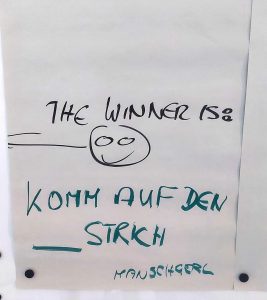 THE WINNER IS:
KOMM AUF DEN
STRICH
MANSCHGERL